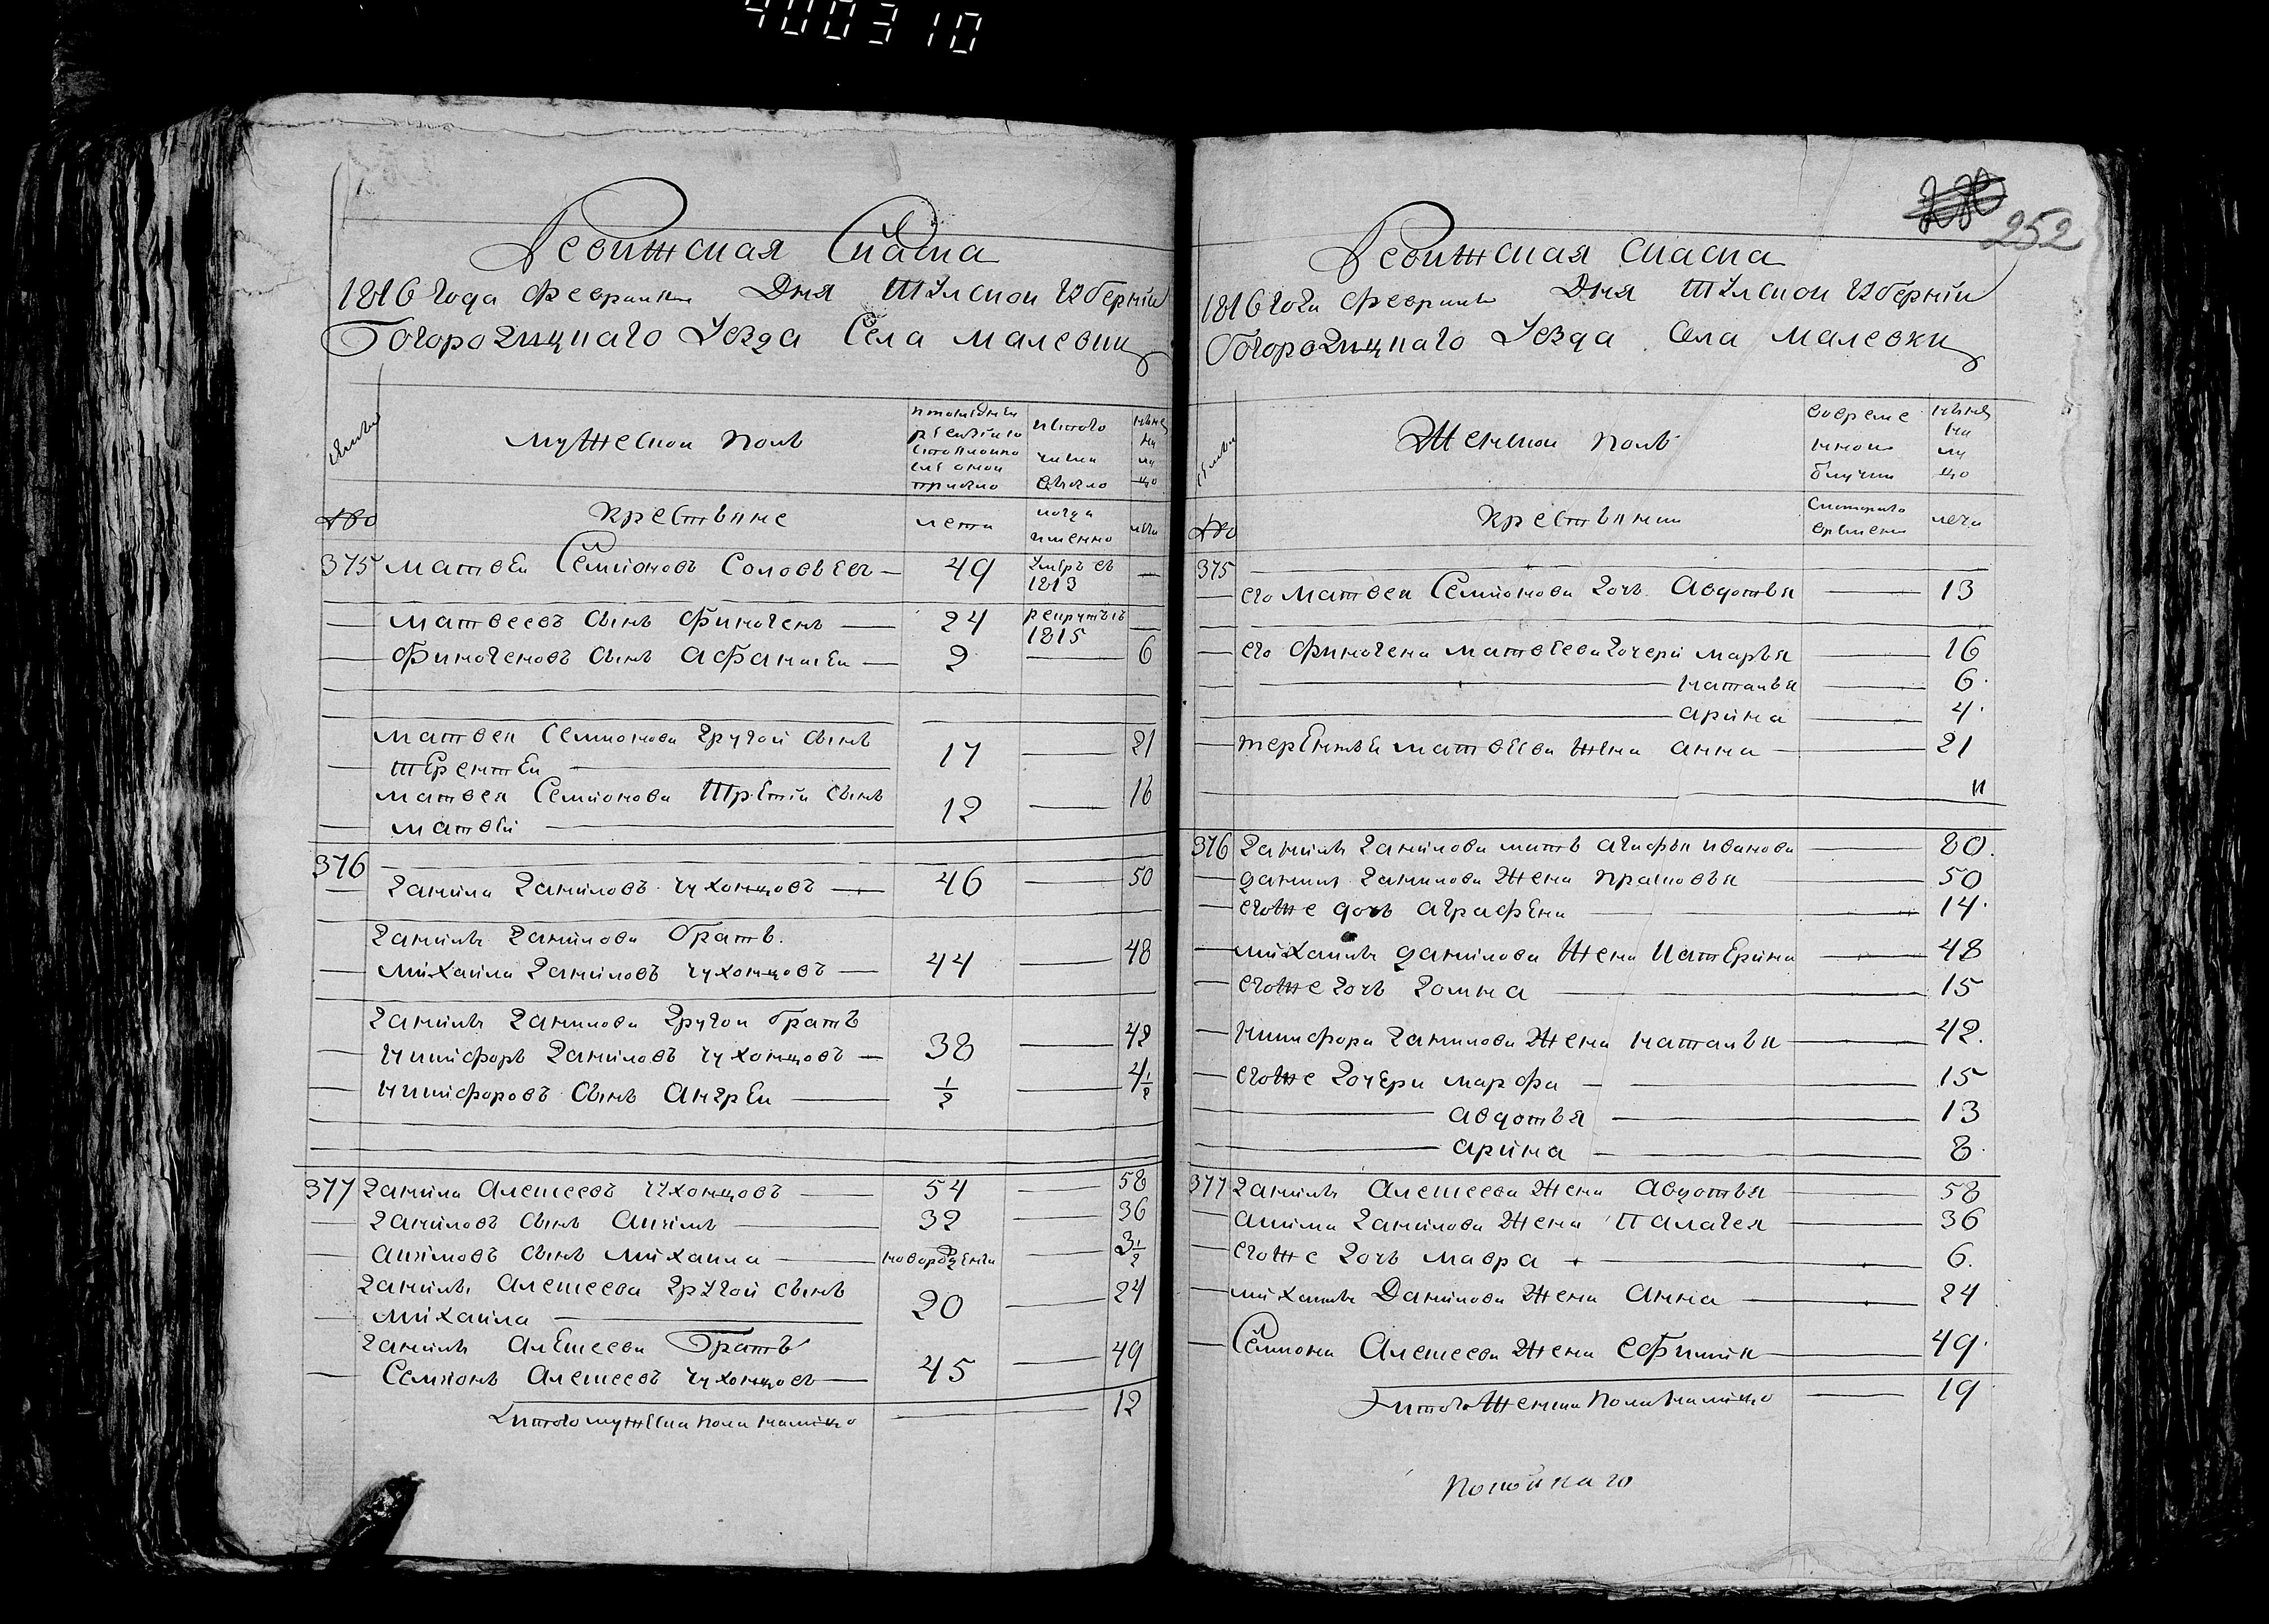 400310
Ревижская Скаска
1816 года февраля Дня Тулской Губернїи
Богородицкаго Уезда Села малевки
мужескои полъ
число
лета
когда
имянно
Крестьяне
375 матвеи Семионовъ Соловьевъ — 49 умръ въ 1813 —
матвеевъ сынъ финогенъ — 24 рекрутъ въ 1815 —
финогеновъ сынъ афанасеи — 2 — 6
матвея семионова другой сынъ
терентеи — 17 — 21
матвея Семионова третїй сынъ
матвей — 12 — 16
376
данила даниловъ чухонцовъ — 46 — 50
данилы данилова братъ.
михаила даниловъ чухонцовъ — 44 — 48
данилы данилова другои братъ
никифоръ даниловъ чухонцовъ — 38 — 42
никифоровъ сынъ андреи — 1/2 — 4 1/2
377 данила алексеевъ чухонцовъ — 54 — 58
даниловъ сынъ акимъ — 32 — 36
акимовъ сынъ михаила — новорожденъ — 3 1/2
данилы алексеева другой сынъ
михаила — 20 — 24
данилы алексеева братъ
Семионъ алексеевъ чухонцовъ — 45 — 49
итого мужеска пола налицо — 12
252
Ревижская скаска
1816 года февраля Дня Тулской Губернїи
Богородицкаго Уезда Села малевки
Женскои полъ
во време
нной
отлучки
ныне
на
ли
цо
Крестьянки
с котораго
времени
лета
375
его матвея Семионова дочь авдотья — 13
его финогена матвеева дочери марья — 16
наталья — 6
арина — 4
терентья матвеева жена анна — 21
376 данилы данилова мать агафья иванова — 80
данилы данилова жена прасковья — 50
егоже дочь аграфена — 14
михаилы данилова жена катерина — 48
егоже дочь домна — 15
никифора данилова жена наталья — 42
егоже дочери марфа — 15
авдотья — 13
арина — 8
377 данилы алексеева жена авдотья — 58
акима данилова жена палагея — 36
егоже дочь мавра — 6
михаилы Данилова жена анна — 24
Семиона алексеева жена ефимия — 49
итого женска пола налицо — 19